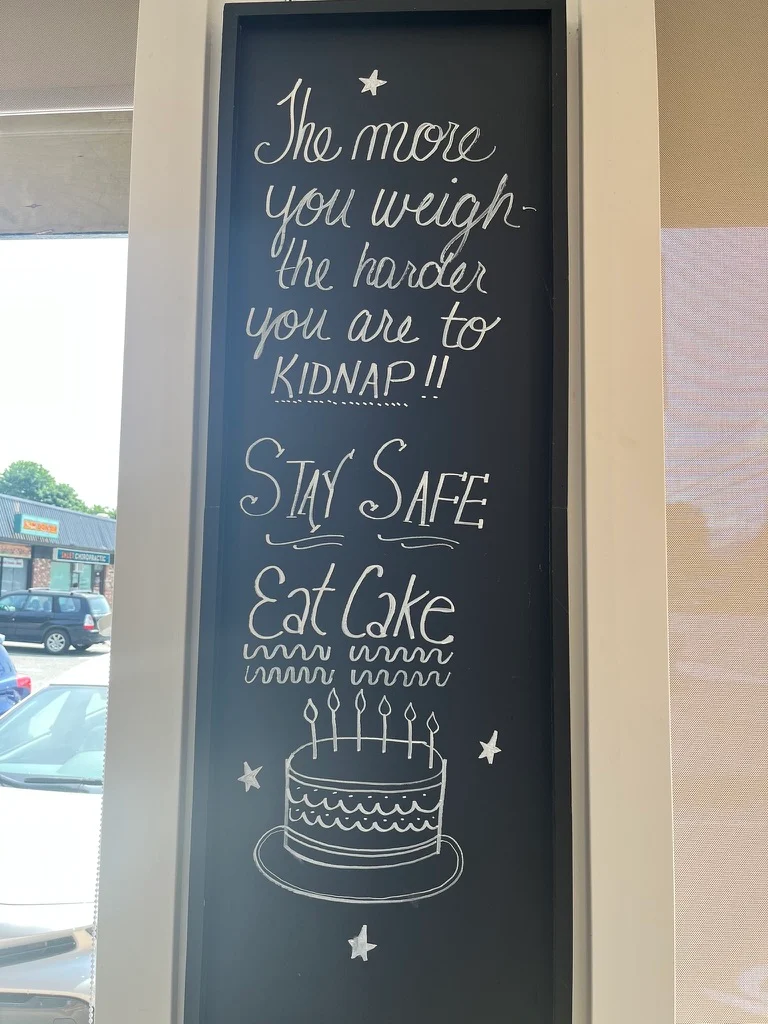 The more
you weigh-
the harder
you are to
KIDNAP!!
STAY SAFE
Eat Cake
CHIROPRACTIC